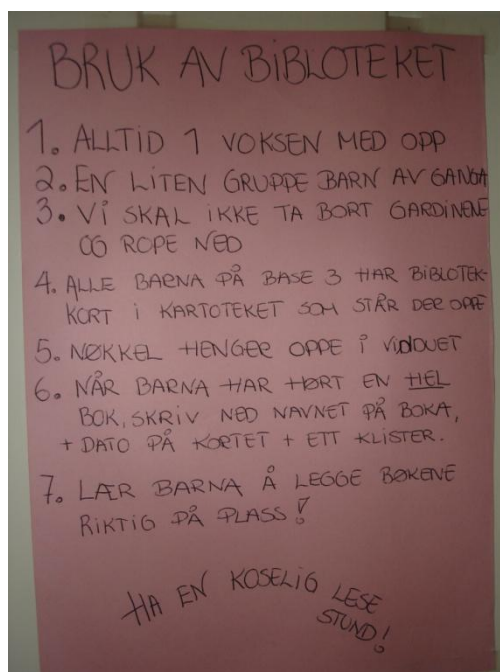 BRUK AV BiBLOTEKET
1. ALLTID 1 VOKSEN MED OPP
2. EN LITEN GRUPPE BARN AV GANGA
3. Vi SKAL iKKE TA BORT GARDINENE
OG ROPE NED
4. ALLE BARNA PÅ BASE 3 HAR BIBLOTEK-
KORT i KARTOTEKET SOM STÅR DER OPPE
5. NØKKEL HENGER OPPE i ViDUET
6. NÅR BARNA HAR HØRT EN HEL
BOK, SKRIV NED NAVNET PÅ BOKA,
+ DATO PÅ KORTET + ETT KLISTER.
7. LÆR BARNA Å LEGGE BØKENE
RiKTiG PÅ PLASS!
HA EN KOSELiG LESE
STUND!